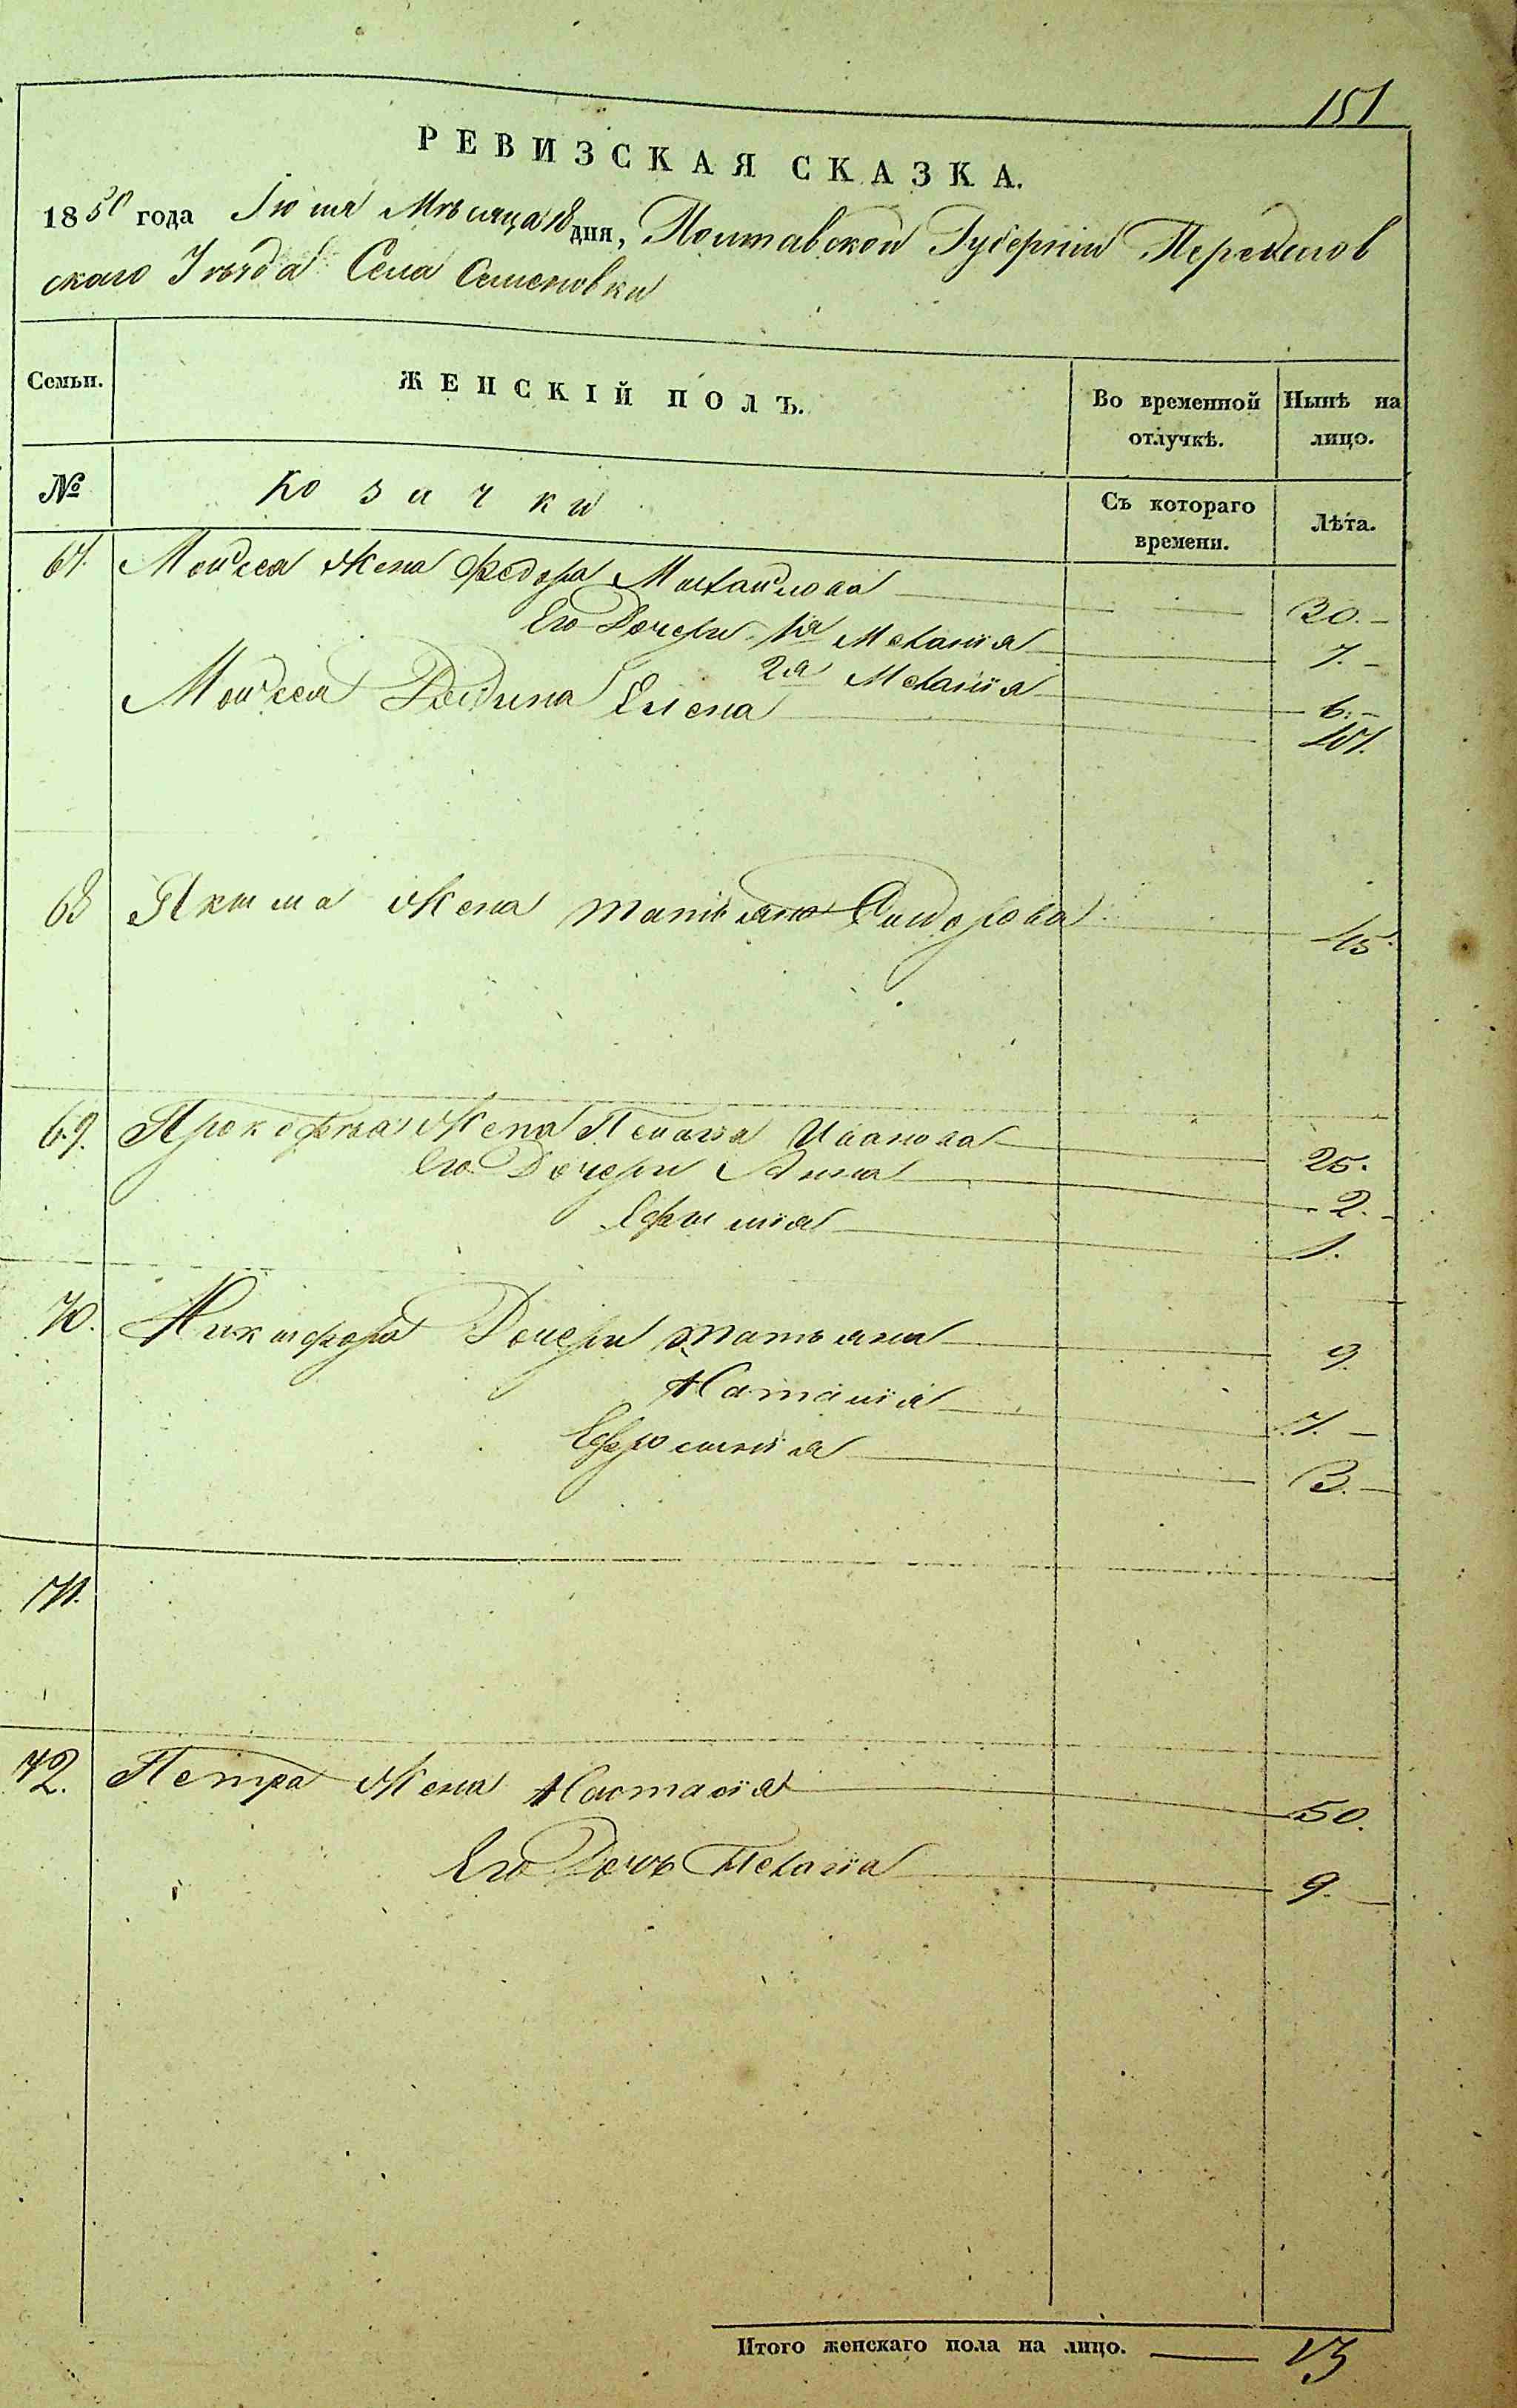 151
РЕВИЗСКАЯ СКАЗКА.
1850 года Іюня Мѣсяца 18 дня, Полтавской Губерніи Переяслов
скаго Уѣзда Села Семеновки
Семьи. ЖЕНСКІЙ ПОЛЪ. Во временной отлучкѣ. Нынѣ на лицо.
№ Козачки Съ котораго времени. Лѣта.
67. Моисея Жена Федора Михайлова 30.
Его Дочери 1я Меланія 7.
2я Меланія 6.
Моисея Елена
68 Якима Жена Татіяна Сидорова 45.
69. Прокофія Жена Пелагія Иванова 25.
Его Дочери Анна 2.
Ефимія 1.
70. Никифора Дочери Татьяна 9.
Наталія 7.
Ефросинія 3.
71.
72. Петра Жена Настасія 50.
Его Дочь Пелагія 9.
Итого женскаго пола на лицо. 13